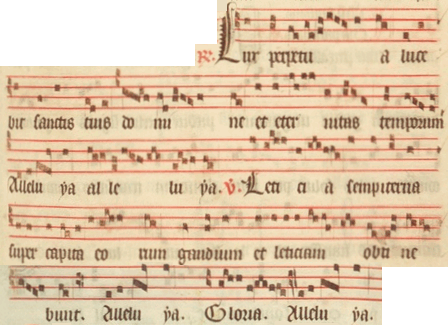 R. Lux perpetu a luce
bit sanctis tuis do mi ne et eter nitas temporum
Allelu ya al le lu ya. V. Leti ci a sempiterna
super capita eo rum gaudium et leticiam obti ne
bunt. Allelu ya. Gloria. Allelu ya.